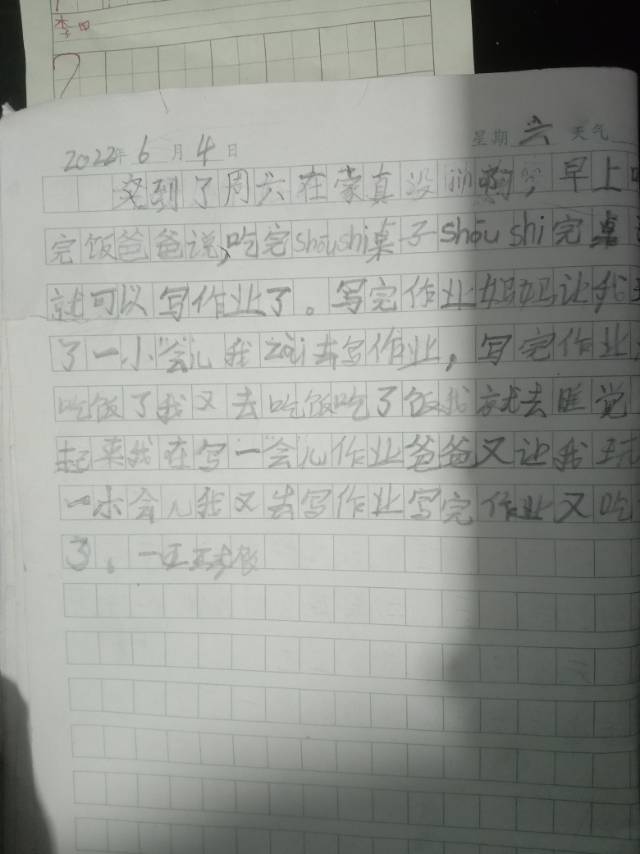 李
2022年6月4日 星期 六 天气
到了周六在家真没啊，早上
完饭爸爸说，吃完shōushi桌子shōushi完桌
就可以写作业了。写完作业妈妈让我
了一小会儿我zài去写作业，写完作业
吃饭了我又去吃饭吃了饭我就去睡觉
起来我在写一会儿作业爸爸又让我玩
一小会儿我又去写作业写完作业又吃
了。一